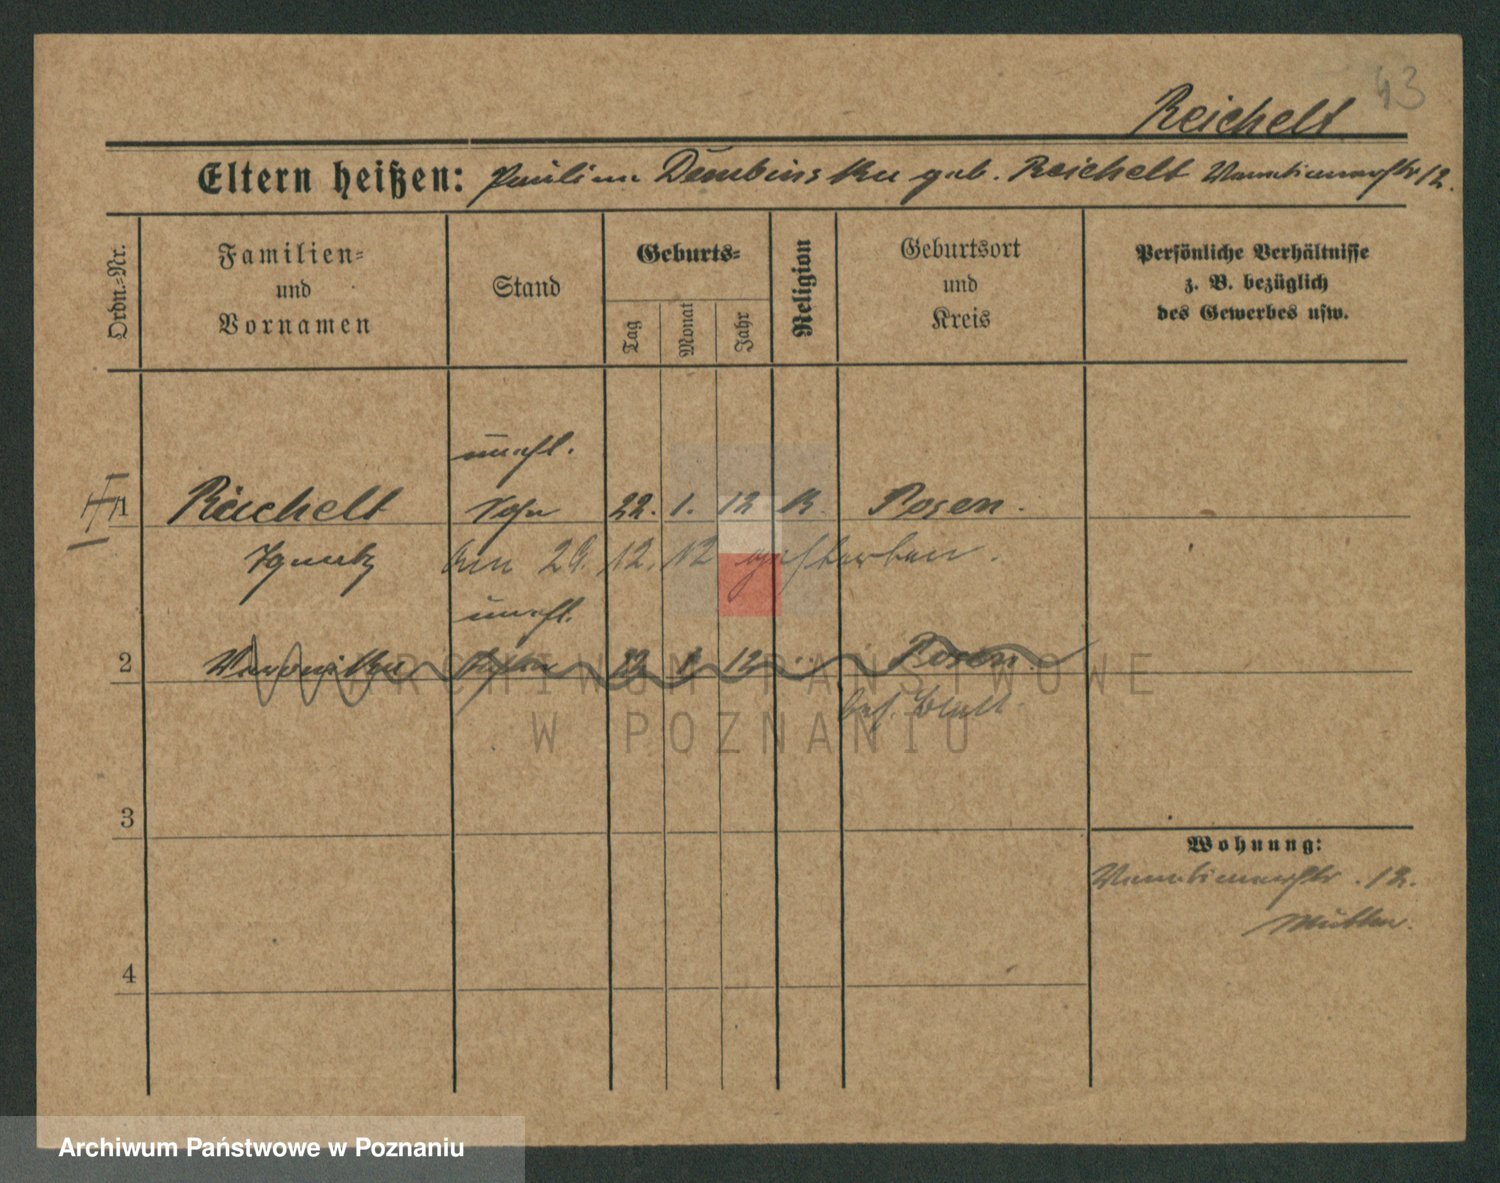 43
Reichelt
Eltern heißen: Pauline Dembinska geb. Reichelt Venetianerstr 12.
Ordn.-Nr.
Familien- und Vornamen
Stand
Geburts-
Tag
Monat
Jahr
Religion
Geburtsort und Kreis
Persönliche Verhältnisse
z. B. bezüglich
des Gewerbes usw.
unehl.
1 Reichelt Sohn 22. 1. 12 K. Posen.
Ignatz Am 29. 12. 12 gestorben.
unehl.
2 Veronika 22 1 12 Posen.
bes. Blatt.
3
Wohnung:
Venetianerstr. 12.
Mutter.
4
ARCHIWUM PAŃSTWOWE
W POZNANIU
Archiwum Państwowe w Poznaniu